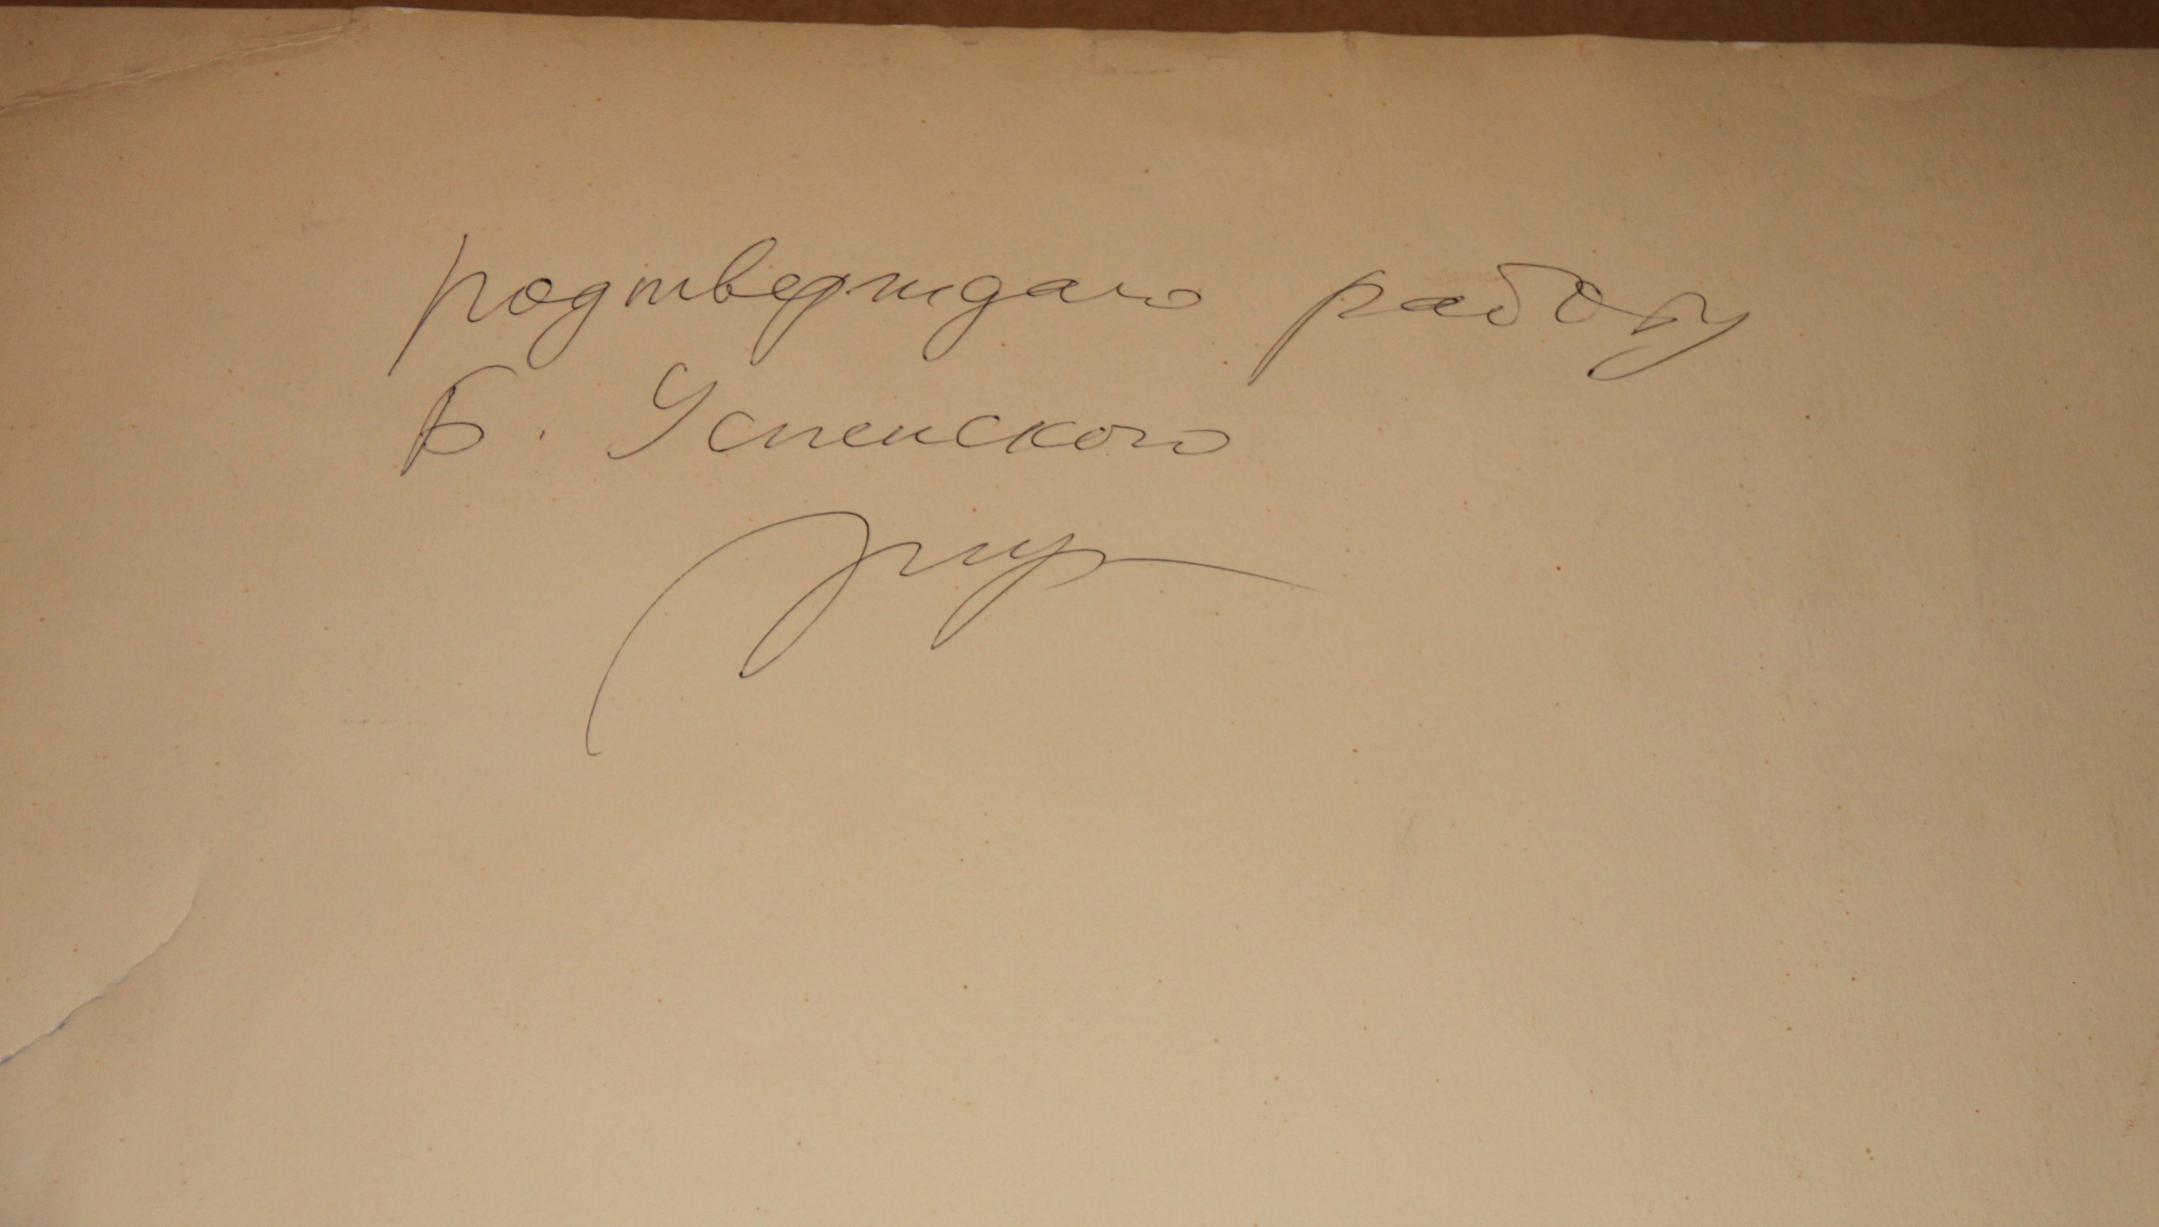 подтверждаю работу
Б. Успенского